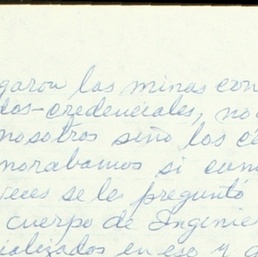 garon las minas con
dos-credenciales, no
nosotros sino los c
norabamos si cum
veces se le preguntó
cuerpo de Ingenie
ializados en eso y